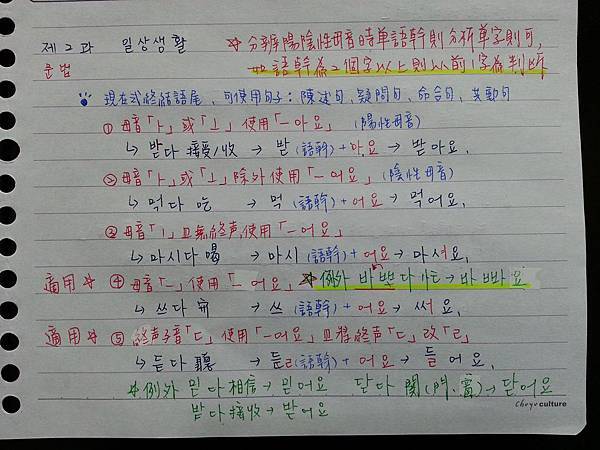 제 2 과 일상생활 ☆ 分辨陽陰性母音時单語幹則分析单字則可,
문법 如語幹為2個字以上則以前1字為判斷
現在式終結語尾、可使用句子:陳述句、疑問句、命令句、共動句
①母音「ㅏ」或「ㅗ」使用「-아요」 (陽性母音)
↳ 받다 接受/收 → 받(語幹)+아요 → 받아요.
②母音「ㅏ」或「ㅗ」除外使用「-어요」(陰性母音)
↳ 먹다 吃 → 먹(語幹)+어요 → 먹어요.
③母音「ㅣ」且無終声,使用「-어요」
↳ 마시다 喝 → 마시(語幹)+어요 → 마셔요.
適用 ☆ ④母音「ㅡ」使用「-어요」 ☆例外 바쁘다 忙→바빠요
↳ 쓰다 寫 → 쓰(語幹)+어요 → 써요.
適用 ☆ ⑤終声子音「ㄷ」使用「-어요」且將終声「ㄷ」改「ㄹ」
↳ 듣다 聽 → 들(語幹)+어요 → 들어요.
☆例外 믿다 相信→믿어요 닫다 關(門、窗)→닫어요
받다 接收→받어요
culture